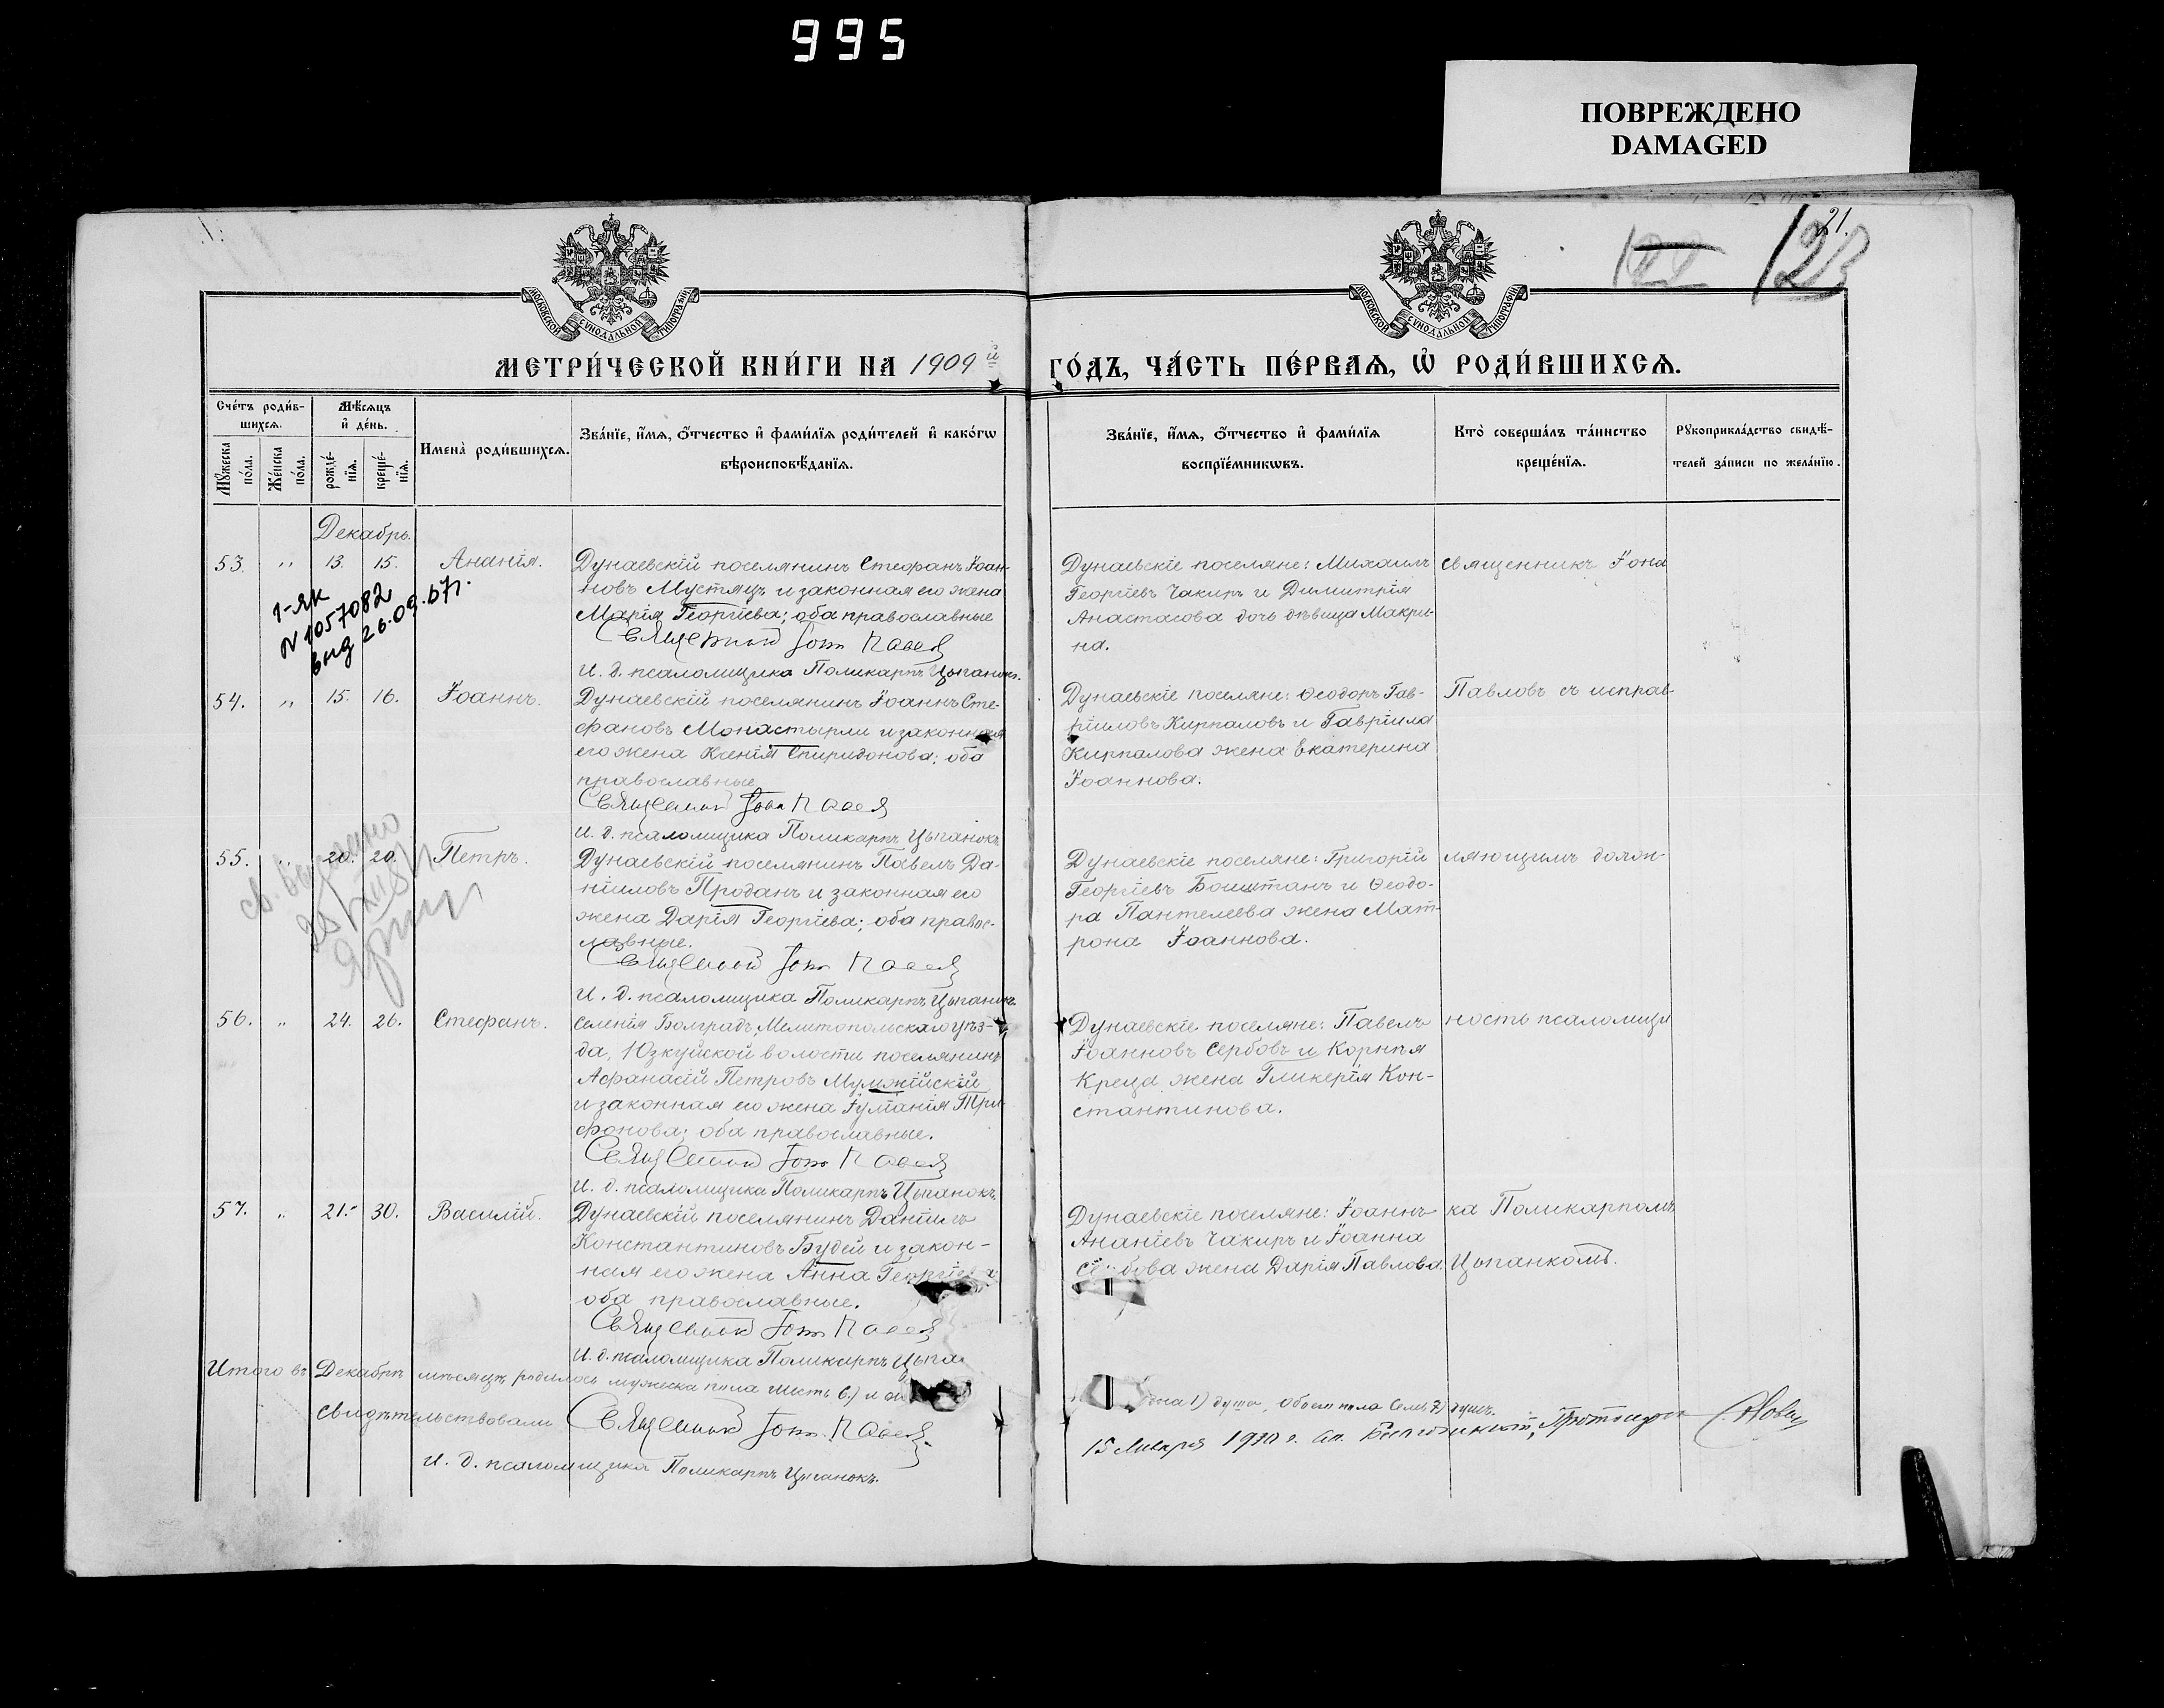 995
ПОВРЕЖДЕНО
DAMAGED
21.
122
123
МОСКОВСКОЙ СѴНОДАЛЬНОЙ ТИПОГРАФІИ
МОСКОВСКОЙ СѴНОДАЛЬНОЙ ТИПОГРАФІИ
МЕТРИ́ЧЕСКОЙ КНИ́ГИ НА 1909й
ГО́ДЪ, ЧА́СТЬ ПЕ́РВАѦ, Ѡ҆ РОДИ́ВШИХСѦ.
Сче́тъ роди́в-
шихсѧ.
Мꙋжеска по́ла.
Же́нска по́ла.
Мѣ́сѧцъ
и҆ де́нь.
рожде́-
нїѧ.
креще́-
нїѧ.
Имена̀ роди́вшихсѧ.
Зва́нїе, и҆́мѧ, ѻ҆́тчество и҆ фами́лїѧ роди́телей и҆ како́гѡ
вѣроисповѣ́данїѧ.
Зва́нїе, и҆́мѧ, ѻ҆́тчество и҆ фами́лїѧ
воспрїе́мникѡвъ.
Кто̀ соверша́лъ та́инство
креще́нїѧ.
Рꙋкоприкла́дство свидѣ́-
телей за́писи по жела́нїю.
Декабрь.
53. " 13. 15. Ананія.
Дунаевскій поселянинъ Стефанъ Іоан-
новъ Мустяцъ и законная его жена
Марія Георгіева; оба православные
Священникъ Іона Павловъ
И. д. псаломщика Поликарпъ Цыганокъ.
Дунаевскіе поселяне: Михаилъ
Георгіевъ Чакиръ и Димитрія
Анастасова дочь дѣвица Макри-
на.
Священникъ Іона
1-ЯК
N 1057082
выд 26.09.57г.
54. " 15. 16. Іоаннъ.
Дунаевскій поселянинъ Іоаннъ Сте-
фановъ Монастырли и законная
его жена Ксенія Спиридонова; оба
православные
Священникъ Іона Павловъ
И. д. псаломщика Поликарпъ Цыганокъ.
Дунаевскіе поселяне: Ѳеодоръ Гав-
ріиловъ Кирпаловъ и Гавріила
Кирпалова жена Екатерина
Іоаннова.
Павловъ съ исправ-
55. " 20. 20. Петръ.
Дунаевскій поселянинъ Павелъ Да-
ніиловъ Проданъ и законная его
жена Дарія Георгіева; оба правос-
лавные.
Священникъ Іона Павловъ
И. д. псаломщика Поликарпъ Цыганокъ.
Дунаевскіе поселяне: Григорій
Георгіевъ Боштанъ и Ѳеодо-
ра Пантелеева жена Мат-
рона Іоаннова.
ляющимъ долж-
св. выдано
56. " 24. 26. Стефанъ.
Селенія Болградъ, Мелитопольскаго уѣз-
да, Юзкуйской волости поселянинъ
Афанасій Петровъ Мумжійскій
и законная его жена Іуліанія Три-
фонова; оба православные.
Священникъ Іона Павловъ
И. д. псаломщика Поликарпъ Цыганокъ.
Дунаевскіе поселяне: Павелъ
Іоанновъ Сербовъ и Корнія
Креца жена Гликерія Кон-
стантинова.
ность псаломщи
57. " 21. 30. Василій.
Дунаевскій поселянинъ Даніилъ
Константиновъ Будей и закон-
ная его жена Анна Георгіева
оба православные.
Священникъ Іона Павловъ
И. д. псаломщика Поликарпъ Цыга
Дунаевскіе поселяне: Іоаннъ
Ананіевъ Чакиръ и Іоанна
бова жена Дарія Павлова.
ка Поликарпомъ
Цыганкомъ.
Итого въ Декабрѣ мѣсяцѣ родилось мужеска пола шесть 6) и
дна 1) душа, обоего пола семь 7) душъ.
Свидѣтельствовали Священникъ Іона Павловъ.
И. д. псаломщика Поликарпъ Цыганокъ.
15 Января 1910 г. Благочинный, Протоіерей